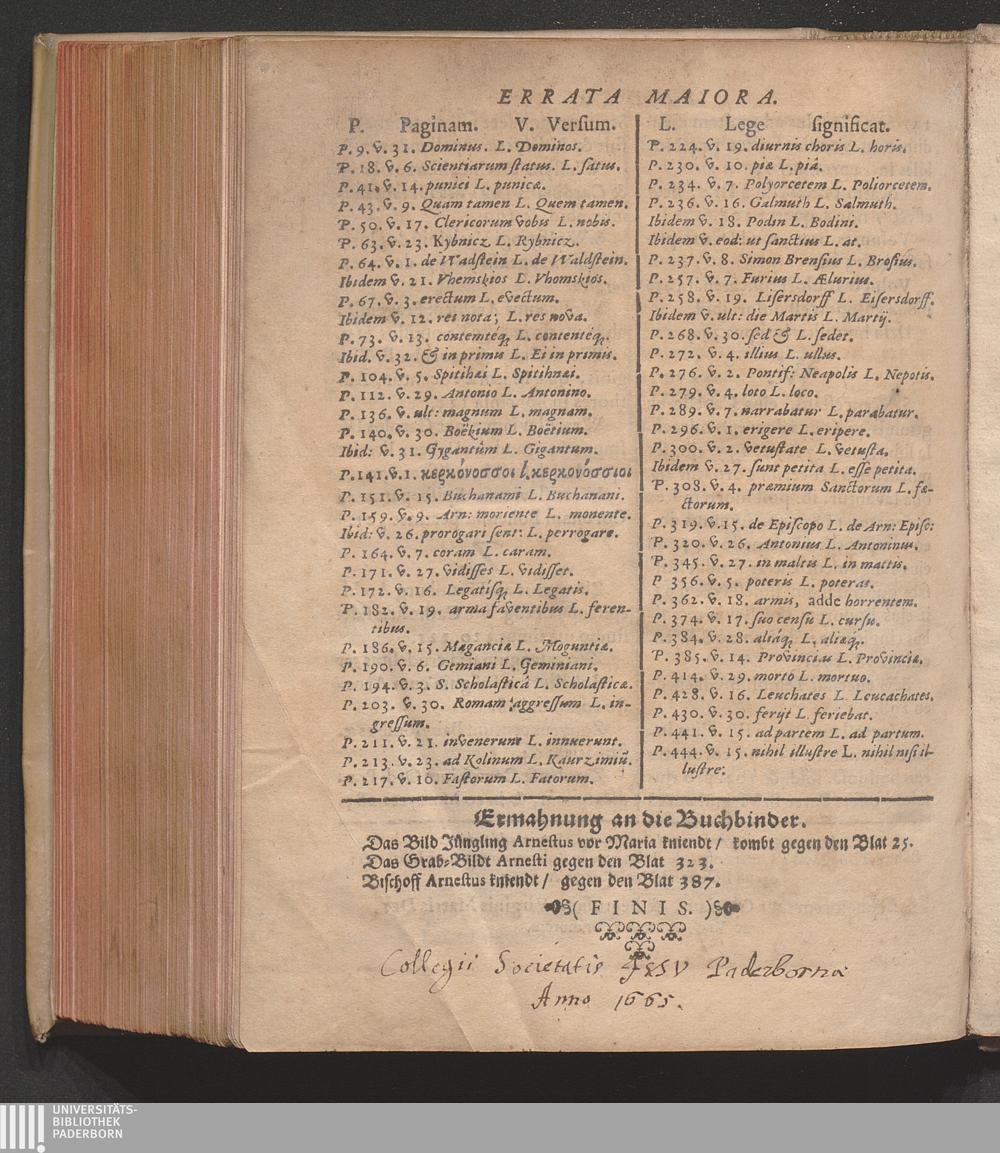 ERRATA MAIORA.
P. Paginam. V. Versum.
P. 9. v. 31. Dominus. L. Dominos.
P. 18. v. 6. Scientiarum status. L. satus.
P. 41. v. 14. punici L. punicæ.
P. 43. v. 9. Quàm tamen L. Quem tamen.
P. 50. v. 17. Clericorum vobis L. nobis.
P. 63. v. 23. Kybnicz L. Rybnicz.
P. 64. v. 1. de Wadstein L. de Waldstein.
Ibidem v. 21. Vhemskios L. Vhomskios.
P. 67. v. 3. erectum L. evectum.
Ibidem v. 12. rei nota; L. res nova.
P. 73. v. 13. contemtéq; L. contentéq;.
Ibid. v. 32. & in primus L. Ei in primis.
P. 104. v. 5. Spitihæi L. Spitihnæi.
P. 112. v. 29. Antonio L. Antonino.
P. 136. v. ult: magnum L. magnam.
P. 140. v. 30. Boëkium L. Boëtium.
Ibid: v. 31. Gygantûm L. Gigantum.
P. 141. v. 1. κερκόνοσσοι l. κερκονόσσιοι
P. 151. v. 15. Buchanami L. Buchanani.
P. 159. v. 9. Arn: moriente L. monente.
Ibid: v. 26. prorogari sent: L. perrogare.
P. 164. v. 7. coram L. caram.
P. 171. v. 27. vidisses L. vidisset.
P. 172. v. 16. Legatísq; L. Legatis.
P. 182. v. 19. arma faventibus L. feren-
tibus.
P. 186. v. 15. Maganciæ L. Moguntiæ.
P. 190. v. 6. Gemiani L. Geminiani.
P. 194. v. 3. S. Scholasticâ L. Scholasticæ.
P. 203. v. 30. Romam aggressum L. in-
gressum.
P. 211. v. 21. invenerunt L. innuerunt.
P. 213. v. 23. ad Kolinum L. Kaurzimiũ.
P. 217. v. 10. Fastorum L. Fatorum.
L. Lege significat.
P. 224. v. 19. diurnis choris L. horis.
P. 230. v. 10. piæ L. piâ.
P. 234. v. 7. Polyorcetem L. Poliorcetem.
P. 236. v. 16. Galmuth L. Salmuth.
Ibidem v. 18. Podin L. Bodini.
Ibidem v. eod: ut sanctius L. at.
P. 237. v. 8. Simon Brensius L. Brosius.
P. 257. v. 7. Furius L. Ælurius.
P. 258. v. 19. Lisersdorff L. Eisersdorff.
Ibidem v. ult: die Martis L. Martij.
P. 268. v. 30. sed & L. sedet.
P. 272. v. 4. illius L. ullus.
P. 276. v. 2. Pontif: Neapolis L. Nepotis.
P. 279. v. 4. loto L. loco.
P. 289. v. 7. narrabatur L. parabatur.
P. 296. v. 1. erigere L. eripere.
P. 300. v. 2. vetustate L. vetusta.
Ibidem v. 27. sunt petita L. esse petita.
P. 308. v. 4. præmium Sanctorum L. fa-
ctorum.
P. 319. v. 15. de Episcopo L. de Arn: Episc:
P. 320. v. 26. Antonius L. Antoninus.
P. 345. v. 27. in maltis L. in mattis.
P 356. v. 5. poteris L. poteras.
P. 362. v. 18. armis, adde horrentem.
P. 374. v. 17. suo censu L. cursu.
P. 384. v. 28. aliáq; L. aliæq;.
P. 385. v. 14. Provincias L. Provinciæ.
P. 414. v. 29. mortò L. mortuo.
P. 428. v. 16. Leuchates L. Leucachates.
P. 430. v. 30. ferijt L feriebat.
P. 441. v. 15. ad partem L. ad partum.
P. 444. v. 15. nihil illustre L. nihil nisi il-
lustre.
Ermahnung an die Buchbinder.
Das Bild Jüngling Arnestus vor Maria kniendt / kombt gegen den Blat 25.
Das Grab-Bildt Arnesti gegen den Blat 323.
Bischoff Arnestus kniendt / gegen den Blat 387.
( FINIS. )
Collegii Societatis JESV Paderbornæ
Anno 1665.
UNIVERSITÄTS-
BIBLIOTHEK
PADERBORN